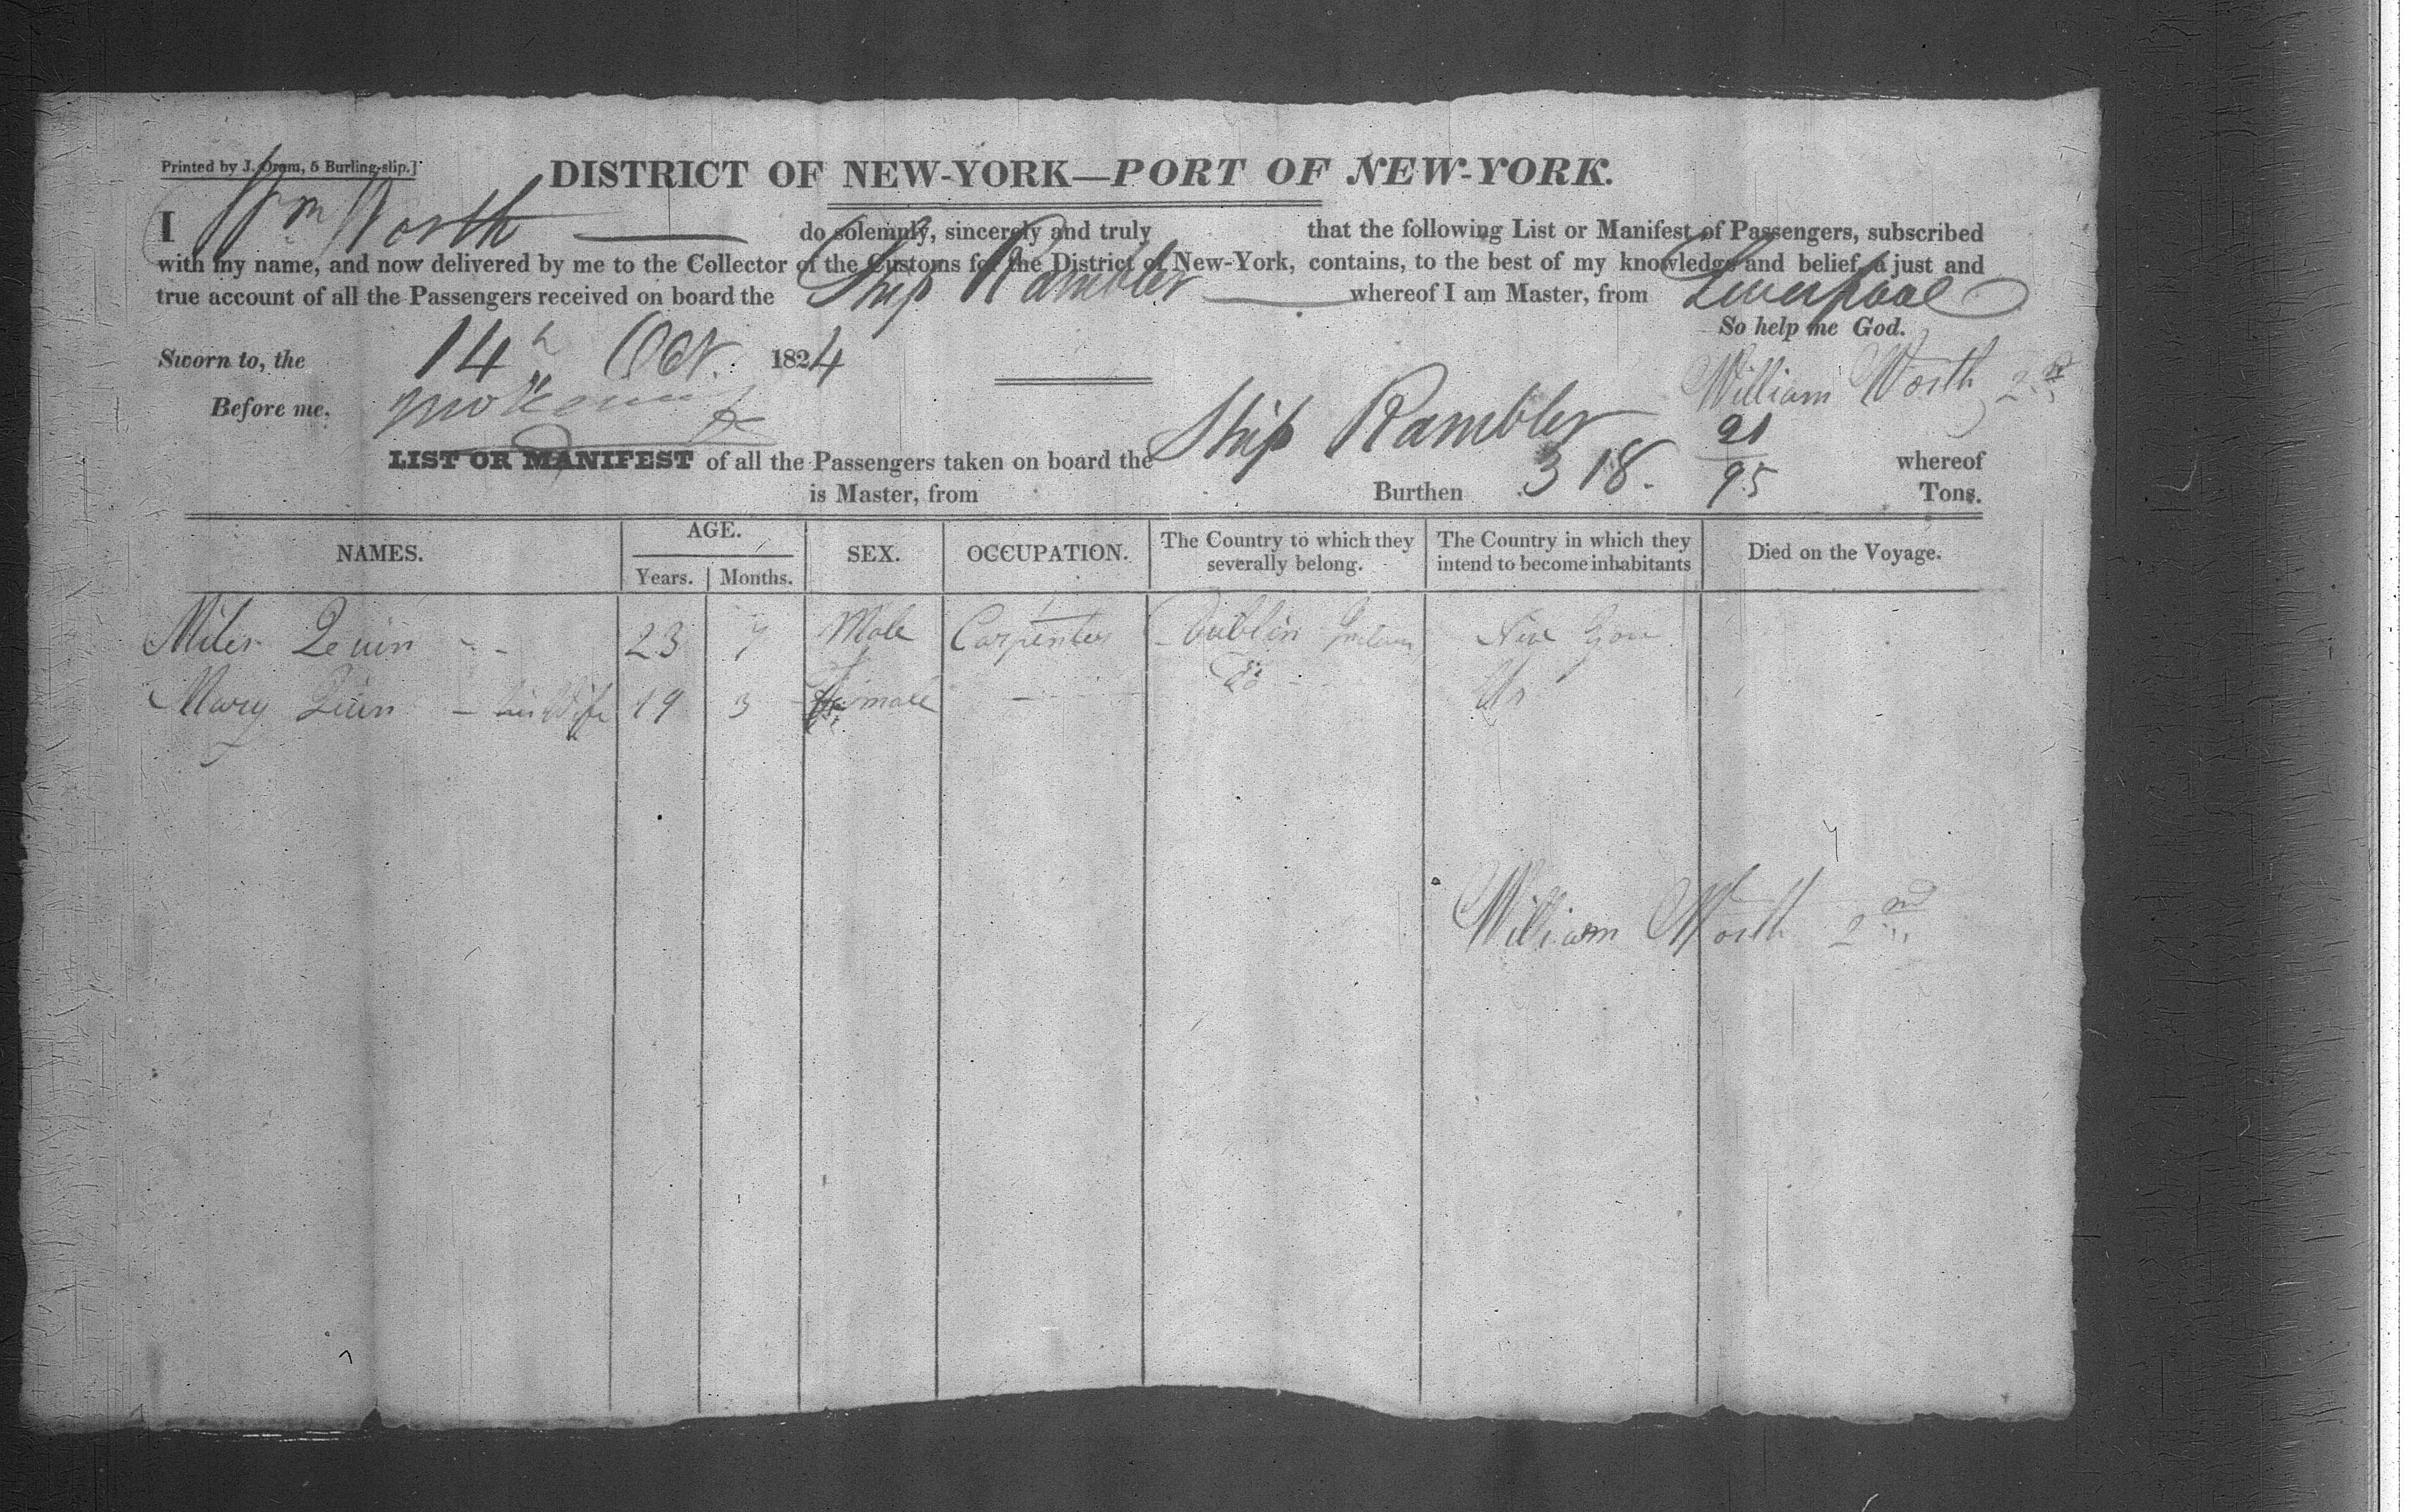 Printed by J. Oram, 5 Burling-slip.]
DISTRICT OF NEW-YORK—PORT OF NEW-YORK.
I Wm Worth do solemnly, sincerely and truly that the following List or Manifest of Passengers, subscribed
with my name, and now delivered by me to the Collector of the Customs for the District of New-York, contains, to the best of my knowledge and belief, a just and
true account of all the Passengers received on board the Ship Rambler whereof I am Master, from Liverpool
So help me God.
Sworn to, the 14th Oct. 1824
William Worth 2nd
Before me,
LIST OR MANIFEST of all the Passengers taken on board the Ship Rambler whereof
is Master, from Burthen 318. 21/95 Tons.
NAMES. AGE. Years. Months. SEX. OCCUPATION. The Country to which they severally belong. The Country in which they intend to become inhabitants Died on the Voyage.
Miles Quin 23 7 Male Carpenter Dublin
Mary Quin - his Wife 19 3 Female - Do
William Worth 2nd